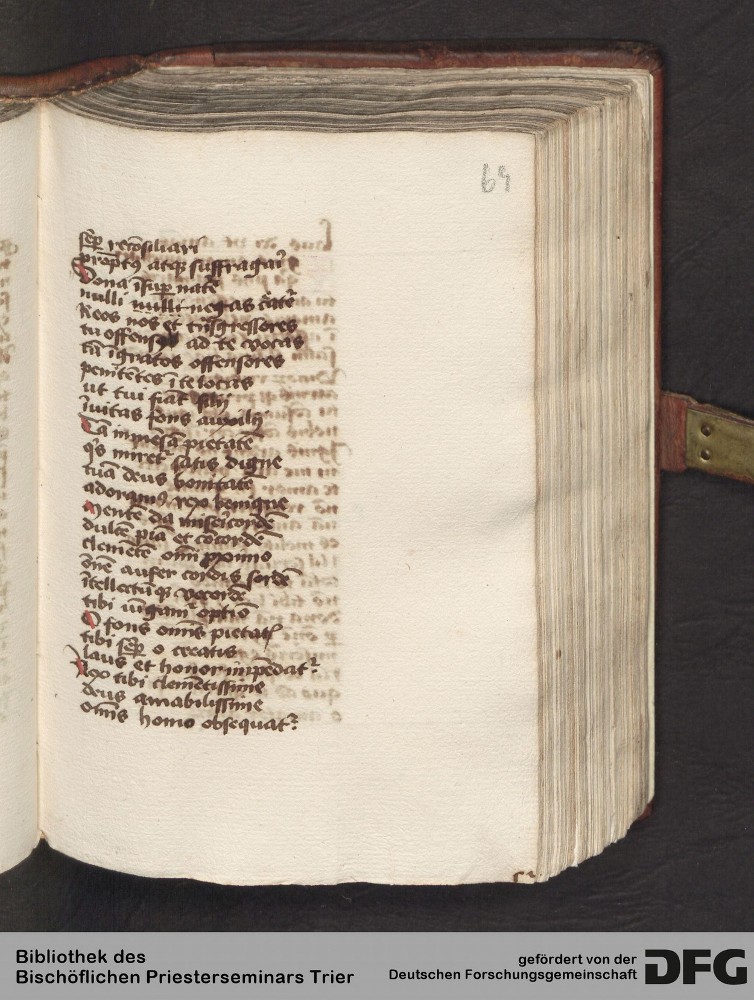 69
sēp recōsiliari
prōptꝰ atqꝫ suffragari
Dona īsup̄ nate
nulli nulli negas tātē
Reos nos et trāsgressores
tu offensꝰ ad te vocas
tā īgratos offensores
penitētes ī te locas
ut tui fiāt filij
īvitas fons auxilij
Tā inmēsā pietatē
qͥs miret̄ satis digne
tuā deus bonitatē
adoramꝰ rex benigne
Mente da misericordē
dulcē piā et cōcordē
clemētē omī proximo
ōne aufer cordis sordē
ītellectūqꝫ vecordē
tibi iūgamͬ optīo
O fons omīs pietatꝭ
tibi sēp o
laus et honor inpēdatͬ
Rex tibi clemētissime
deus amabilissime
omīs homo obsequatͬ
Bibliothek des
Bischöflichen Priesterseminars Trier
gefördert von der
Deutschen Forschungsgemeinschaft
DFG